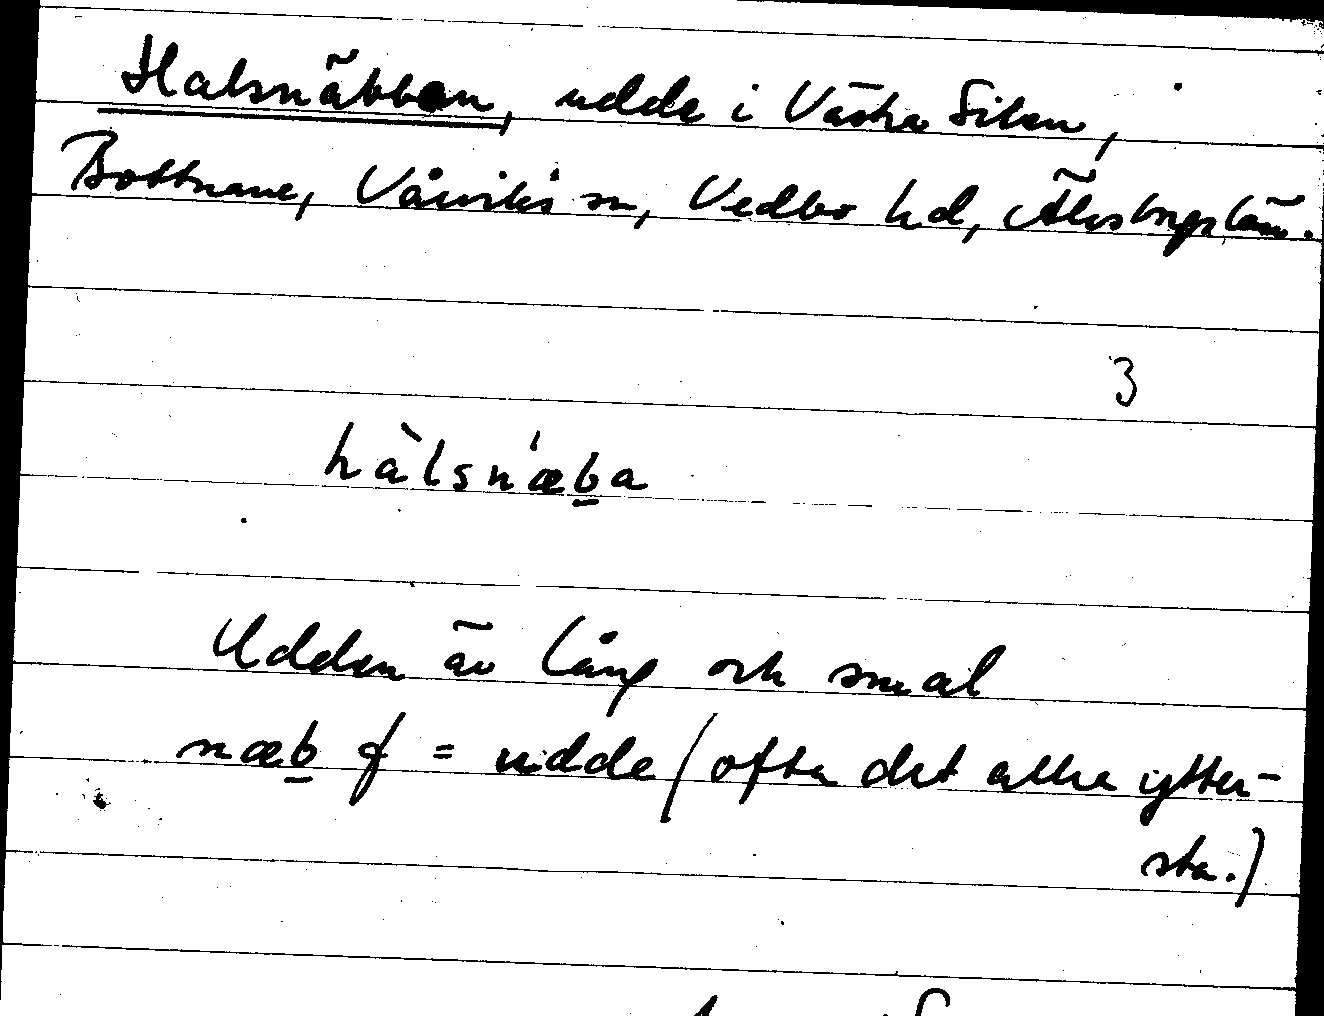 Halsnäbben, udde i Västra Silen,
Bottnane, Vårviks sn, Vedbo hd, Älvsborgs län.
3
hàlsnæ̍b̲a
Udden är lång och smal
næb̲ f = udde (ofta det allra ytter-
sta.)